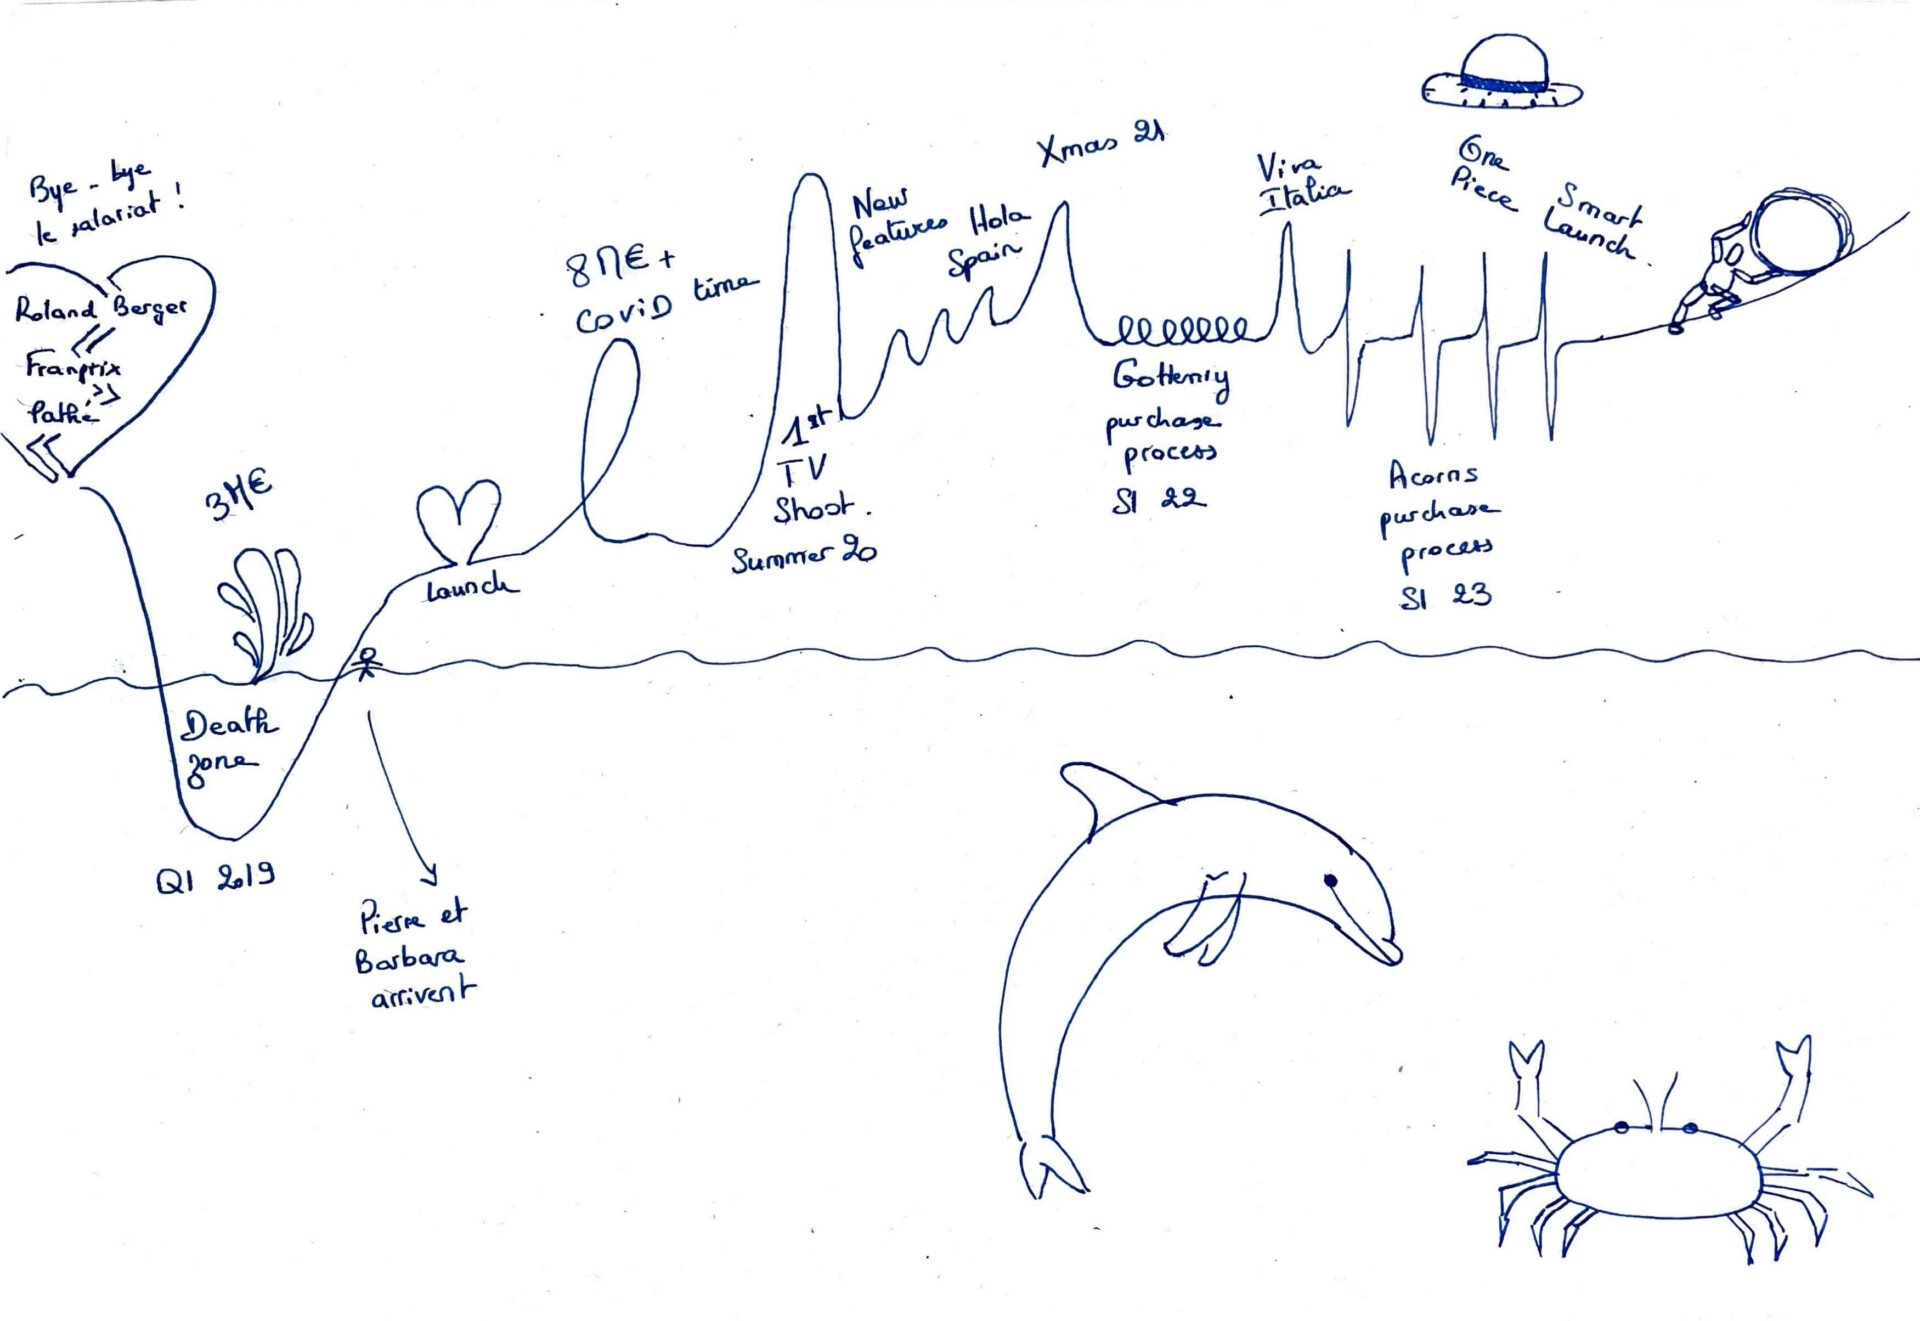 Bye-bye
le salariat !
Roland Berger
Franprix
Pathé
3M€
Death
zone
Q1 2019
Pierre et
Barbara
arrivent
Launch
8M€ +
CoviD time
1st
TV
Shoot.
Summer 20
New
features
Hola
Spain
Xmas 21
GoHenry
purchase
process
S1 22
Viva
Italia
Acorns
purchase
process
S1 23
One
Piece
Smart
Launch.